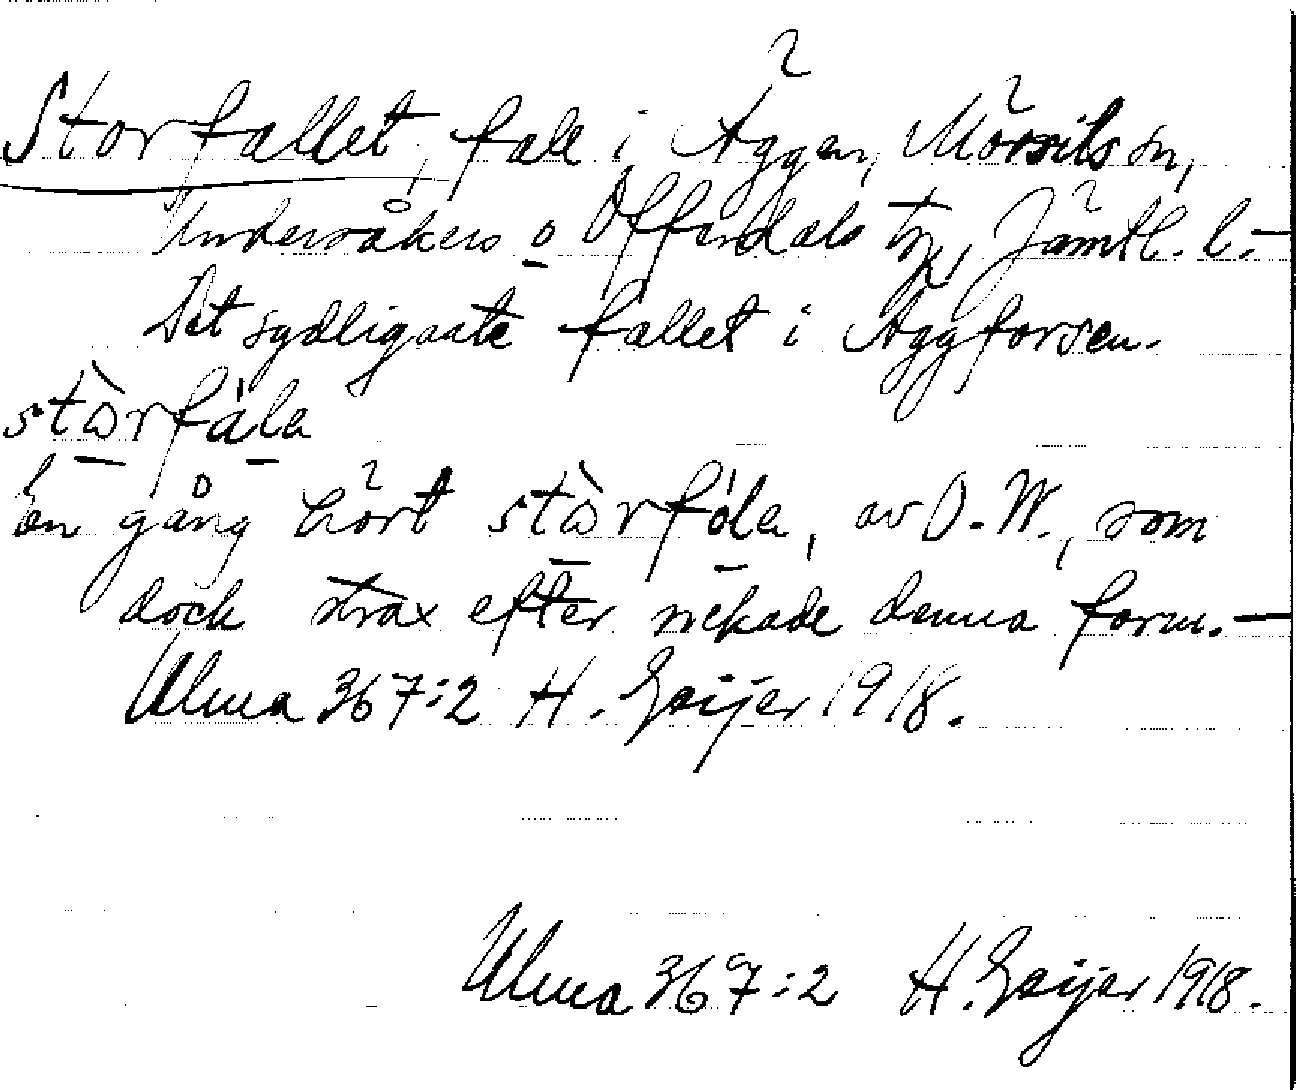 Storfallet, fall i Äggen, Mörsils sn,
Undersåkers o Offerdals tg, Jämtl. l. –
Det sydligaste fallet i Äggforsen.
stòrfála
En gång hört stòrfóla, av O. W., som
dock strax efter nekade denna form. –
Ulma 367:2 H. Geijer 1918.
Ulma 367:2 H. Geijer 1918.